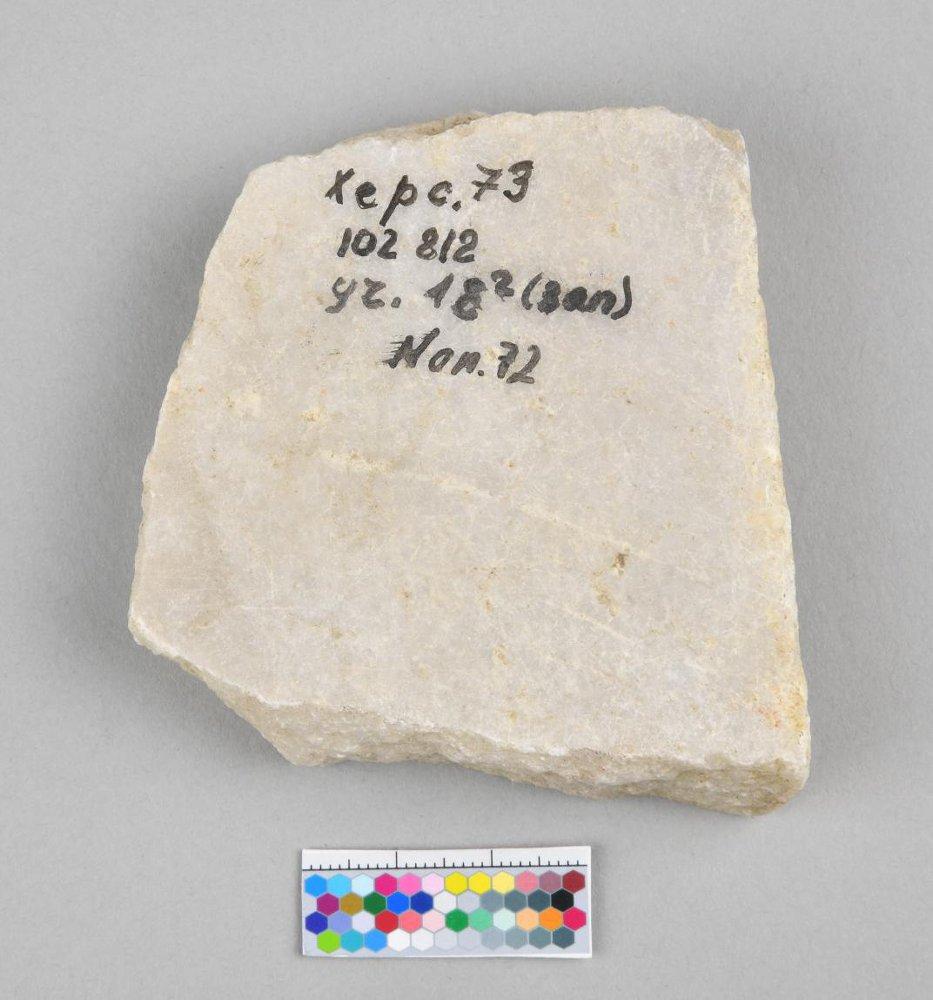 Херс. 73
102 812
уч. 18² (зап)
Пом. 72